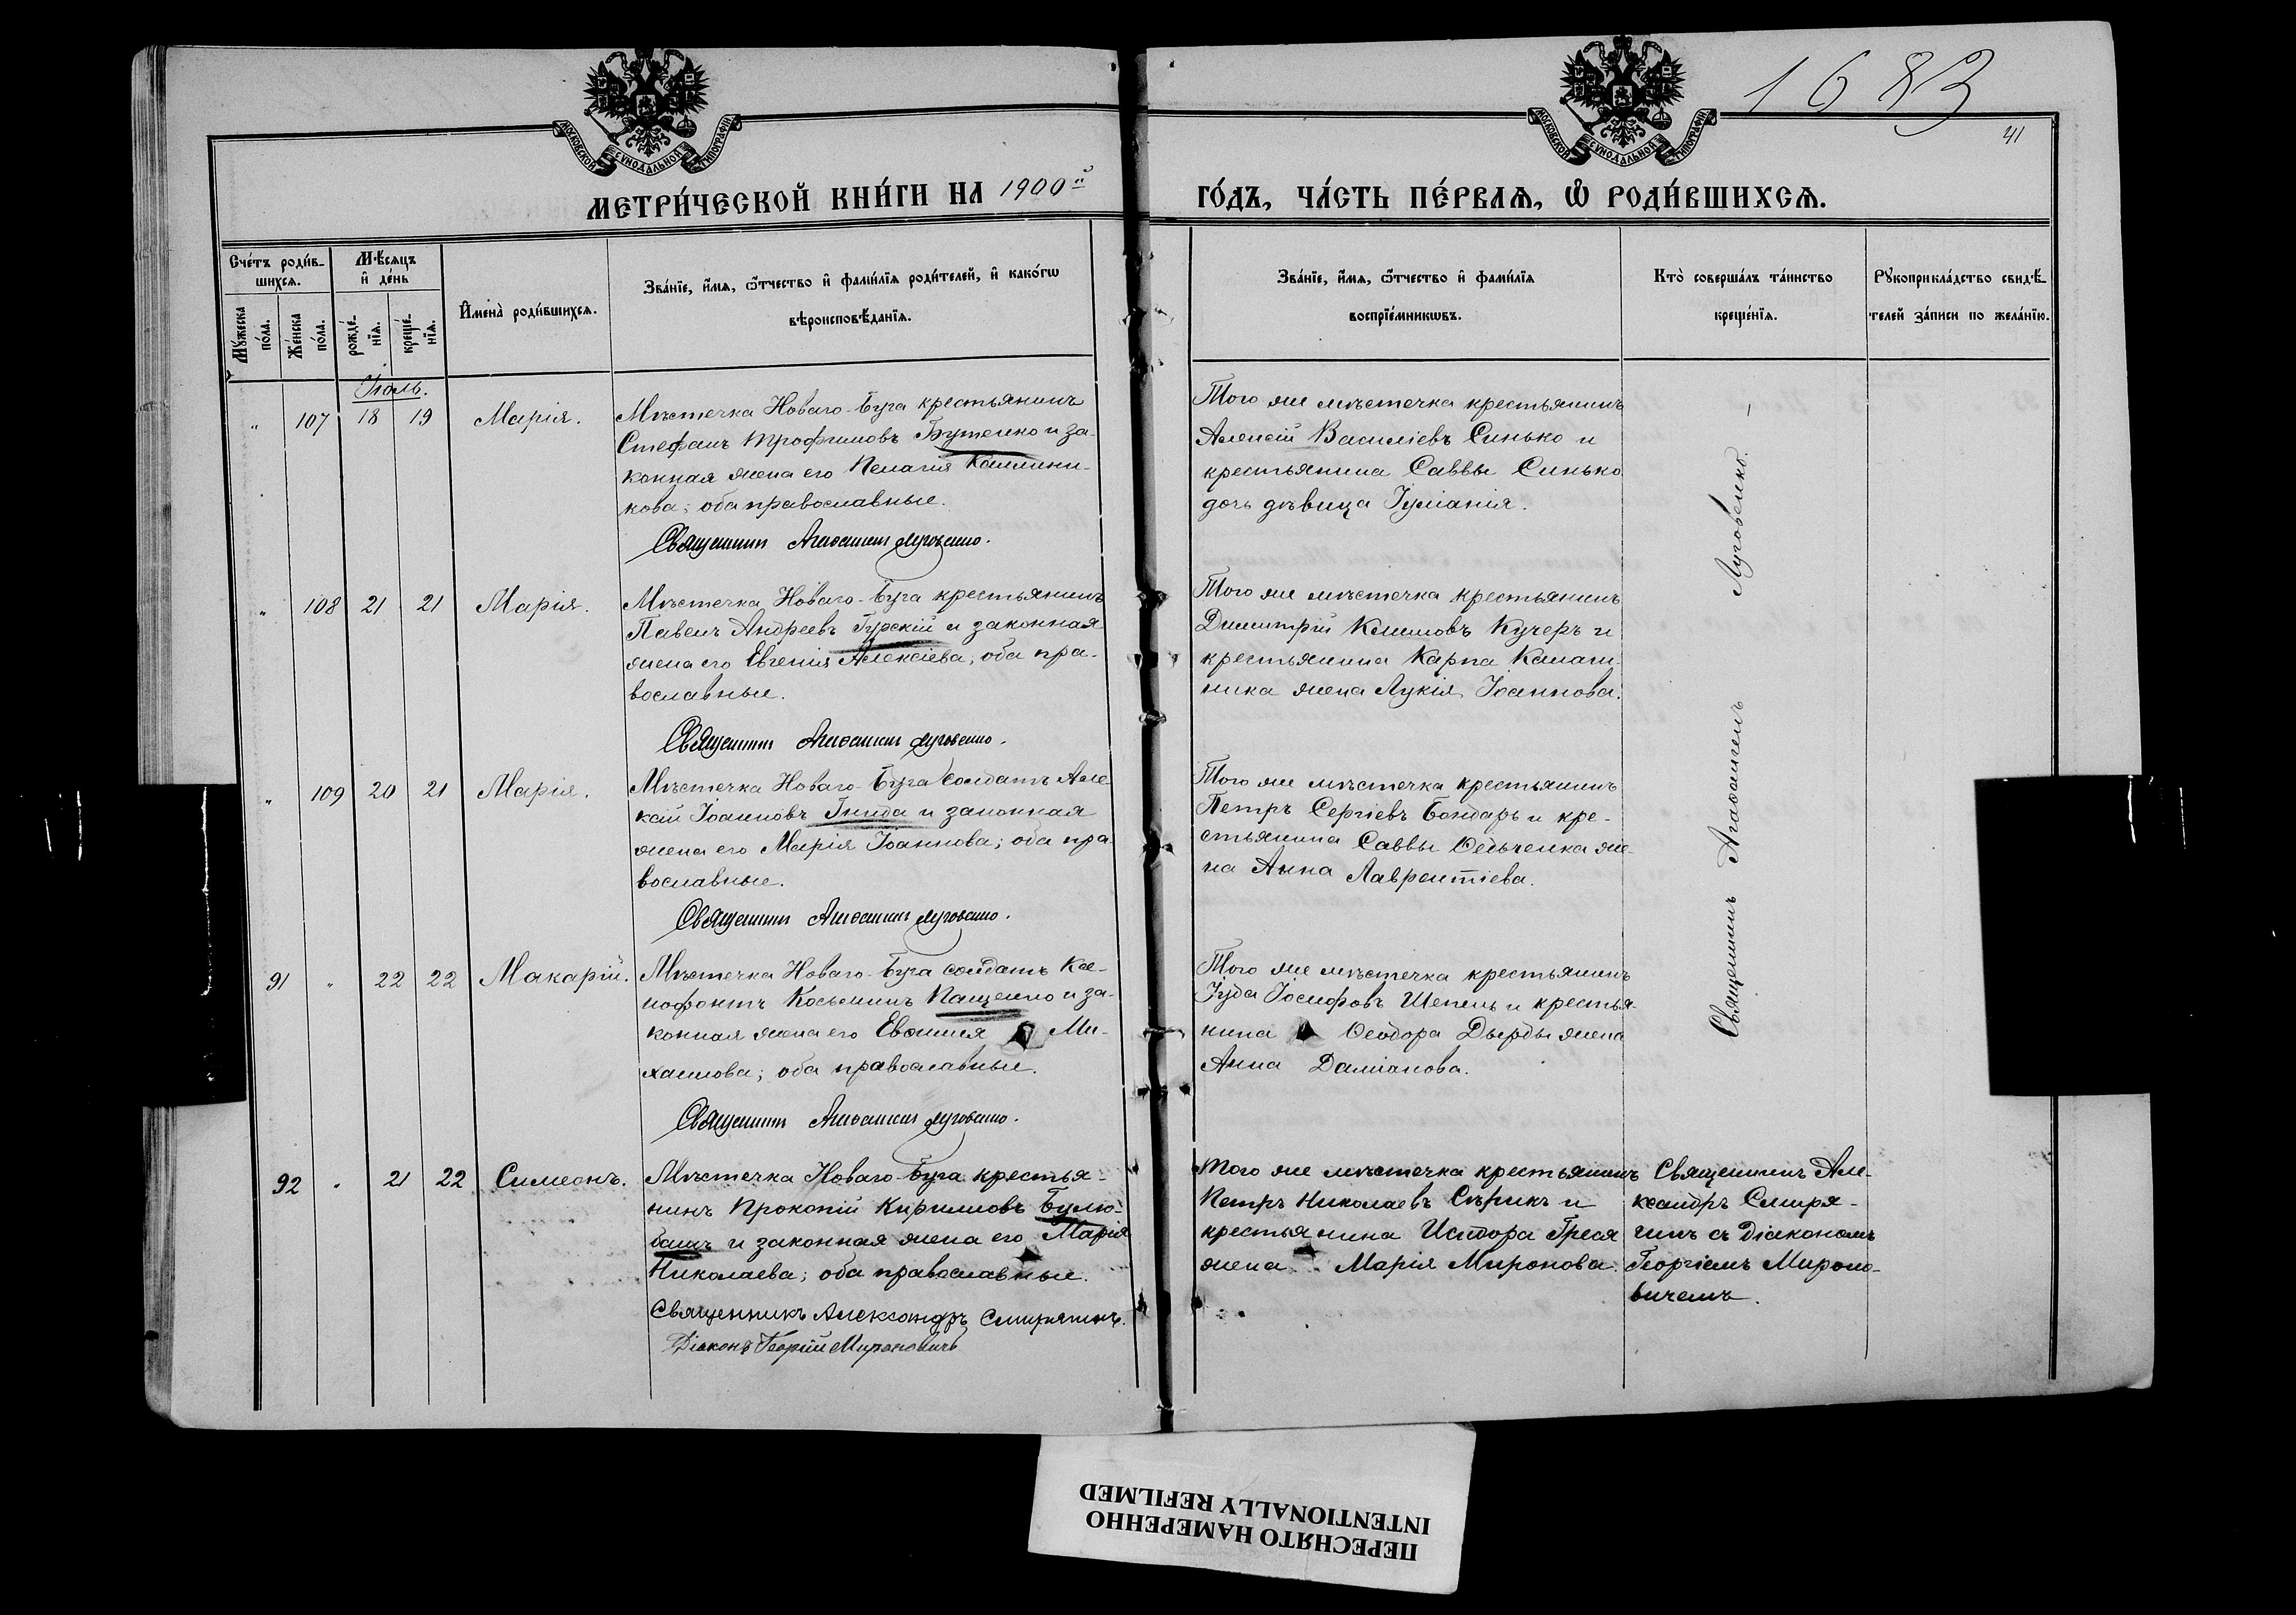 1683
41
МОСКОВСКОЙ СУНОДАЛЬНОЙ ТИПОГРАФІИ
МОСКОВСКОЙ СУНОДАЛЬНОЙ ТИПОГРАФІИ
МЕТРИ́ЧЕСКОЙ КНИ́ГИ НА 1900й
ГО́ДЪ, ЧА́СТЬ ПЕ́РВАЯ, Ѽ РОДИ́ВШИХСЯ.
Сче́тъ роди́в-
шихся.
Му́жеска по́ла.
Же́нска по́ла.
Мѣ́сяцъ
и҆ де́нь
рожде́-
нія.
креще́-
нія.
И҆мена̀ роди́вшихся.
Зва́ніе, и҆́мя, ѻ҆́тчество и҆ фами́лія роди́телей, и҆ како́гѡ
вѣроисповѣ́данія.
Зва́ніе, и҆́мя, ѻ҆́тчество и҆ фами́лія
воспріе́мникѡвъ.
Кто̀ соверша́лъ та́инство
креще́нія.
Рꙋкоприкла́дство свидѣ́-
телей за́писи по жела́нію.
Іюль.
„ 107 18 19 Марія.
Мѣстечка Новаго-Буга крестьянинъ
Стефанъ Трофимовъ Бутенко и за-
конная жена его Пелагія
кова; оба православные.
Священникъ Агаѳангелъ Луговенко.
Того же мѣстечка крестьянинъ
Алексій Василіевъ Синько и
крестьянина Саввы Синько
дочь дѣвица Іуліанія.
„ 108 21 21 Марія.
Мѣстечка Новаго-Буга крестьянинъ
Павелъ Андреевъ Гурскій и законная
жена его Евгенія Алексіева; оба пра-
вославные.
Священникъ Агаѳангелъ Луговенко.
Того же мѣстечка крестьянинъ
Димитрій Климовъ Кучеръ и
крестьянина Карпа Калаш-
ника жена Лукія Іоаннова.
„ 109 20 21 Марія.
Мѣстечка Новаго-Буга солдатъ Але-
ксій Іоанновъ Гнида и законная
жена его Марія Іоаннова; оба пра-
вославные.
Священникъ Агаѳангелъ Луговенко.
Того же мѣстечка крестьянинъ
Петръ Сергіевъ Бондарь и кре-
стьянина Саввы же-
на Анна Лаврентіева.
91 „ 22 22 Макарій.
Мѣстечка Новаго-Буга солдатъ Ксе-
нофонтъ Косьминъ Пащенко и за-
конная жена его Евѳимія Ми-
хаилова; оба православные.
Священникъ Агаѳангелъ Луговенко.
Того же мѣстечка крестьянинъ
Іуда Іосифовъ Шепель и крестья-
нина Ѳеодора Дырды жена
Анна Даміанова.
Священникъ Агаѳангелъ Луговенко.
92 „ 21 22 Симеонъ.
Мѣстечка Новаго-Буга крестья-
нинъ Прокопій Кирилловъ Булю-
башъ и законная жена его Марія
Николаева; оба православные.
Священникъ Александръ Смирягинъ.
Діаконъ Георгій Мироновичъ
Того же мѣстечка крестьянинъ
Петръ Николаевъ Сѣрикъ и
крестьянина
жена Марія Миронова.
Священникъ Але-
ксандръ Смиря-
гинъ съ діакономъ
Георгіемъ Мироно-
вичемъ.
ПЕРЕСНЯТО НАМЕРЕННО
INTENTIONALLY REFILMED